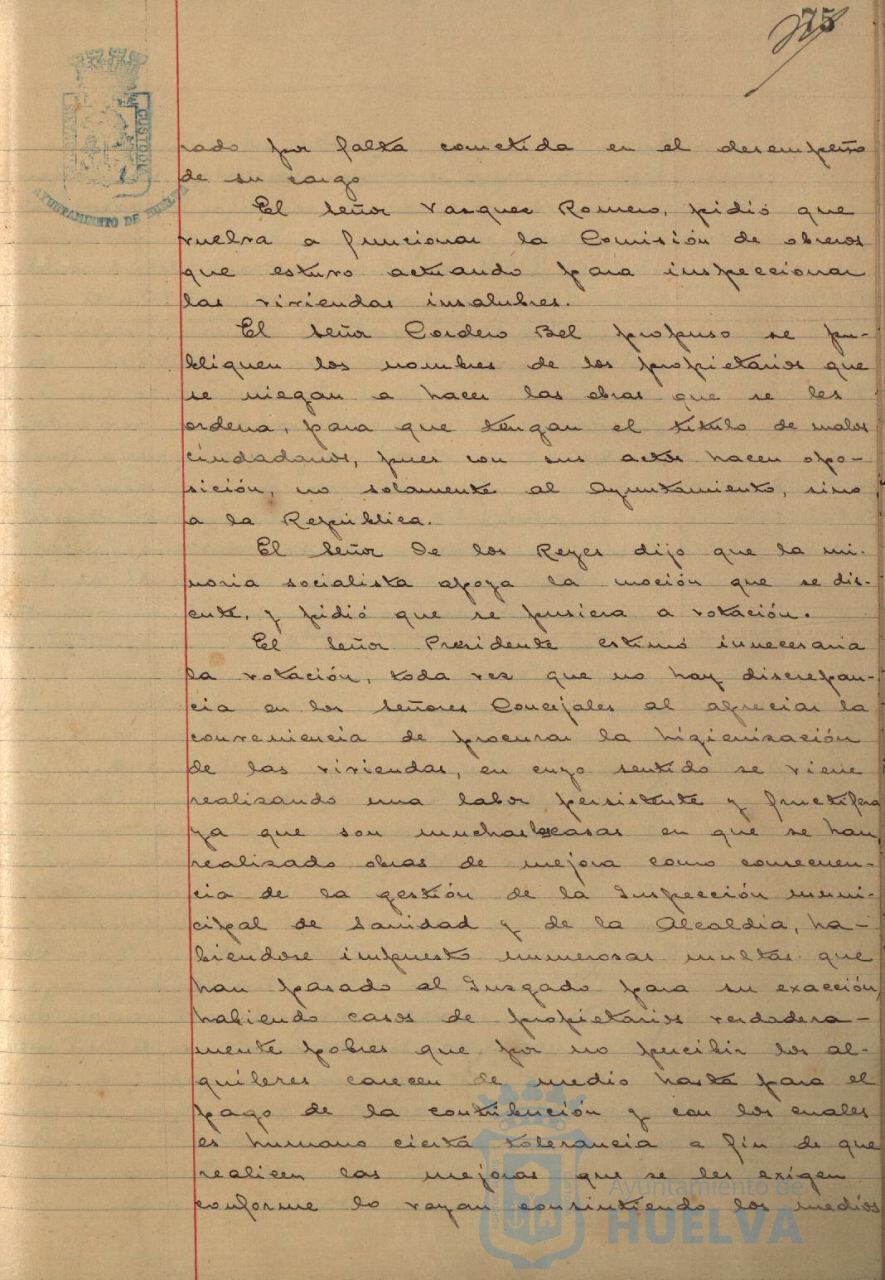 75
rado por falta cometida en el desempeño
de su cargo
El señor Vazquez Romero, pidió que
vuelva a funcionar la Comisión de obreros
que estuvo actuando para inspeccionar
las viviendas insalubres.
El señor Cordero Bel propuso se pu-
bliquen los nombres de los propietarios que
se niegan a hacer las obras que se les
ordena, para que tengan el titulo de malos
ciudadanos, pues con sus actos hacen opo-
sición, no solamente al Ayuntamiento, sino
a la República.
El señor De los Reyes dijo que la mi-
noria socialista apoya la moción que se dis-
cute, y pidió que se pusiera a votación.
El señor Presidente estimó innecesaria
la votación, toda vez que no hay discrepan-
cia en los señores Concejales al apreciar la
conveniencia de procurar la higienización
de las viviendas, en cuyo sentido se viene
realizando una labor persistente y fructifera
ya que son muchas las casas en que se han
realizado obras de mejora como consecuen-
cia de la gestión de la Inspección muni-
cipal de Sanidad y de la Alcaldia, ha-
biendose impuesto numerosas multas que
han pasado al Juzgado para su exacción,
habiendo casos de propietarios verdadera-
mente pobres que por no percibir los al-
quileres carecen de medio hasta para el
pago de la contribución y con los cuales
es humano cierta tolerancia a fin de que
realicen las mejoras que se les exigen
conforme lo vayan consintiendo los medios
AYUNTAMIENTO DE HUELVA
Ayuntamiento de
HUELVA